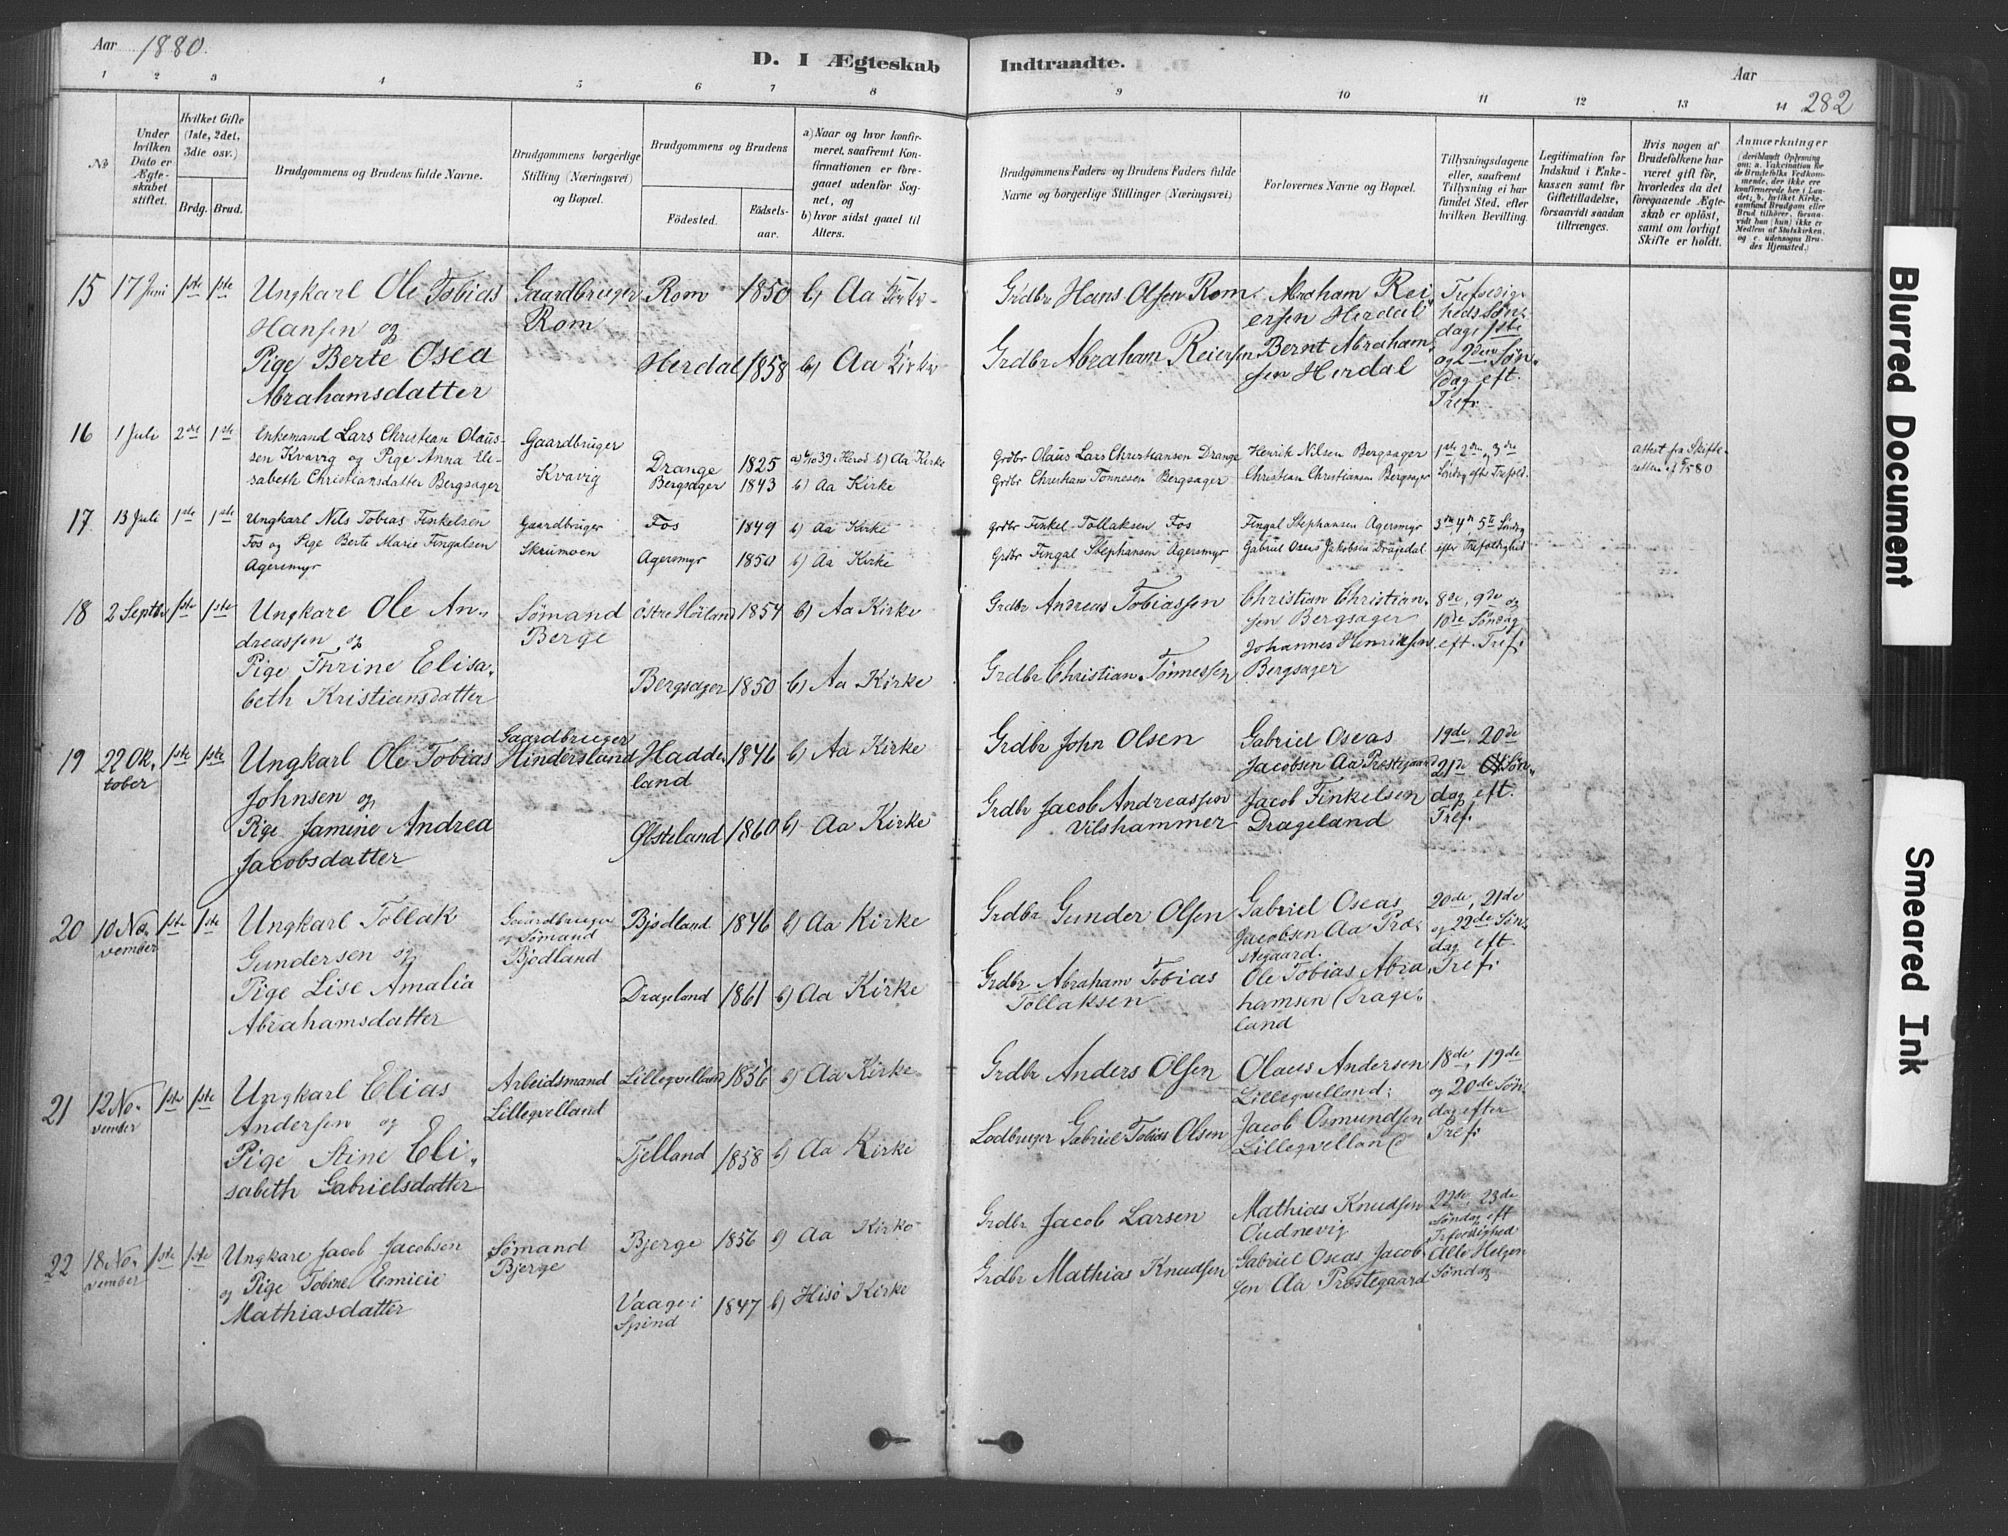 Aar 1880.
D. I Ægteskab Indtraadte.
Aar
282
1 2 3 4 5 6 7 8 9 10 11 12 13 14
No
Under hvilken Dato er Ægteskabet stiftet.
Hvilket Gifte (1ste, 2det, 3die osv.)
Brdg. Brud.
Brudgommens og Brudens fulde Navne.
Brudgommens borgerlige Stilling (Næringsvei) og Bopæl.
Brudgommens og Brudens
Födested.
Födselsaar.
a) Naar og hvor konfirmeret, saafremt Konfirmationen er foregaaet udenfor Sognet, og
b) hvor sidst gaaet til Alters.
Brudgommens Faders og Brudens Faders fulde Navne og borgerlige Stillinger (Næringsvei)
Forlovernes Navne og Bopæl.
Tillysningsdagene eller, saafremt Tillysning ei har fundet Sted, efter hvilken Bevilling.
Legitimation for Indskud i Enkekassen samt for Giftetilladelse, forsaavidt saadan tiltrænges.
Hvis nogen af Brudefolkene har været gift för, hvorledes da det foregaaende Ægteskab er oplöst, samt om lovligt Skifte er holdt.
Anmærkninger
15 17 Juni 1ste 1ste Ungkarl Ole Tobias Gaardbruger Rom 1850 b) Aa Kirke Grdbr Hans Olsen Rom. Abraham Rei- Trefoldig-
Hansen og Rom ersen Herdal heds Søn-
dag 1ste
Pige Berte Osea Herdal 1858 b) Aa Kirke Grdbr Abraham Reiersen Bernt Abraham- og 2den Søn-
Abrahamsdatter sen Herdal dag eft.
Tref.
16 1 Juli 2det 1ste Enkemand Lars Christian Olaus- Gaardbruger Drange 1825 Herad b) Aa Kirke Grdbr Olaus Lars Christiansen Drange Henrik Nilsen Bergsager 1ste 2den 3de Attest fra Skifte-
sen Kvavig og Pige Anna Eli- Kvavig Bergsager 1843 b) Aa Kirke Grdbr Christian Tønnesen Bergsager Christian Christiansen Bergsager Søndag efter Trefold.
sabeth Christiansdatter Bergsager
17. 13 Juli 1ste 1ste Ungkarl Nils Tobias Finkelsen Gaardbruger Fos 1849 b) Aa Kirke Grdbr Finkel Tollaksen Fos Fingal Stephansen Agersmyr 3de 4de 5te Søndag
Fos og Pige Berte Marie Fingalsen Skrumoen Agersmyr 1850 b) Aa Kirke Grdbr Fingal Stephansen Agersmyr Gabriel Oseas Jakobsen Dragedal efter Trefoldighed
Agersmyr
18 2 Septbr 1ste 1ste Ungkare Ole An- Sømand Østre Høiland 1854 b) Aa Kirke Grdbr Andreas Tobiassen Christian Christian- 8de, 9de og
dreassen og Berge sen Bergsager 10de Søndag
Pige Thrine Elisa- Bergsager 1850 b) Aa Kirke Grdbr Christian Tønnessen Johannes Henriksen eft. Tref.
beth Kristiansdatter Bergsager
19 22 Ok- 1ste 1ste Ungkarl Ole Tobias Gaardbruger Hadde- 1846 b) Aa Kirke Grdbr John Olsen Gabriel Oseas 19de, 20de
tober Johnsen og Hindersland land Jacobsen Aa Prestegaard 21de Søn-
Pige Jamine Andrea Østeland 1860 b) Aa Kirke Grdbr Jacob Andreassen Jacob Finkelsen dag eft.
Jacobsdatter Vilshammer Drageland Tref.
20 10 No- 1ste 1ste Ungkarl Tollak Gaardbruger Bjødland 1846 b) Aa Kirke Grdbr Gunder Olsen Gabriel Oseas 20de, 21de
vember Gundersen og og Sømand Jacobsen Aa Præ- og 22de Søn-
Bjødland stegaard. dag eft.
Pige Lise Amalia Drageland 1861 b) Aa Kirke Grdbr Abraham Tobias Ole Tobias Abra- Tref.
Abrahamsdatter Tollaksen hamsen Drage-
land
21 12 No- 1ste 1ste Ungkarl Elias Arbeidsmand Lilleqvelland 1856 b) Aa Kirke Grdbr Anders Olsen Olaus Andersen 18de, 19de
vember Andersen og Lilleqvelland Lilleqvelland; og 20de Søn-
Pige Stine Eli- Fjelland 1858 b) Aa Kirke Lodbruger Gabriel Tobias Olsen Jacob Osmundsen dag efter
sabeth Gabrielsdatter Lilleqvelland Tref.
22 18 No- 1ste 1ste Ungkare Jacob Jacobsen Sømand Bjerge 1856 b) Aa Kirke Grdbr Jacob Larsen Mathias Knudsen 22de, 23de
vember og Pige Tobine Emilie Bjerge Oudnevig Søndag eft
Mathiasdatter Vaage i 1847 b) Hisø Kirke Grdbr Mathias Knudsen Gabriel Oseas Jacob- Trefoldighed
Spind sen Aa Prestegaard Alle Helgen
Søndag
Blurred Document
Smeared Ink